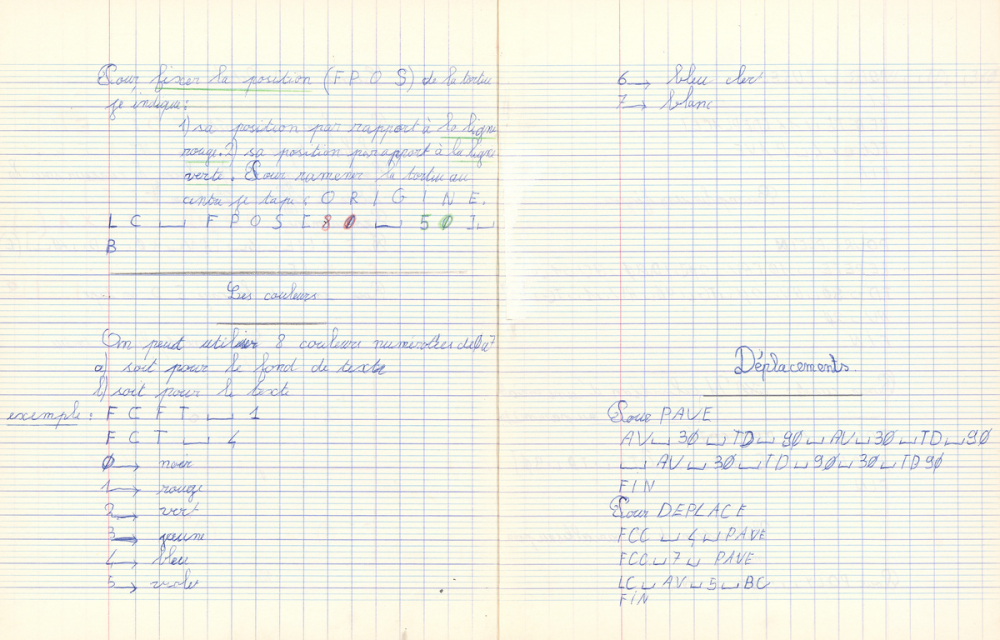 Pour fixer la position (F P O S) de la tortue
je indique:
1) sa position par rapport à la ligne
rouge. 2) sa position par apport à la ligne
verte. Pour ramener la tortue au
centre je tape: O R I G I N E.
L C ␣ F P O S [ 8 0 ␣ 5 0 ] ␣
B
Les couleurs
On peut utiliser 8 couleurs numérotées de 0 à 7
a) soit pour le fond de texte
b) soit pour le texte
exemple: F C F T ␣ 1
F C T ␣ 4
0 → noir
1 → rouge
2 → vert
3 → jaune
4 → bleu
5 → violet
6 → bleu clair
7 → blanc
Déplacements.
Pour PAVE
AV ␣ 30 ␣ TD ␣ 90 ␣ AV ␣ 30 ␣ TD ␣ 90
␣ AV ␣ 30 ␣ TD ␣ 90 ␣ 30 ␣ TD 90
FIN
Pour DEPLACE
FCC ␣ 4 ␣ PAVE
FCC ␣ 7 ␣ PAVE
LC ␣ AV ␣ 5 ␣ BC
FIN